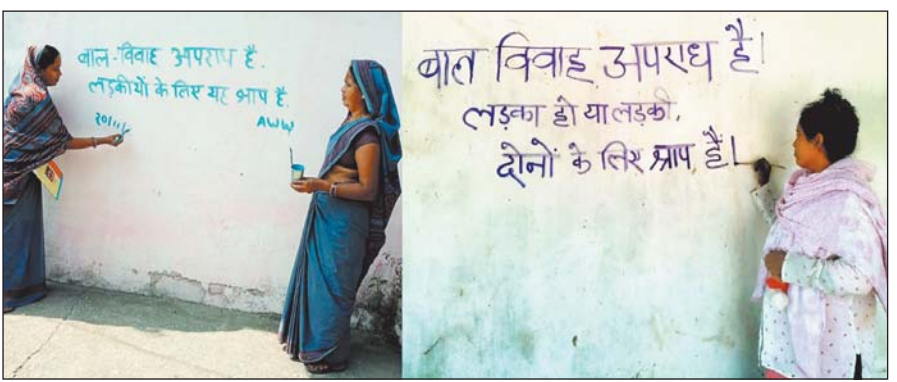 बाल-विवाह अपराध है.
लड़कीयों के लिए यह श्राप है.
AWW
बाल विवाह अपराध है।
लड़का हो या लड़की,
दोनों के लिए श्राप है।